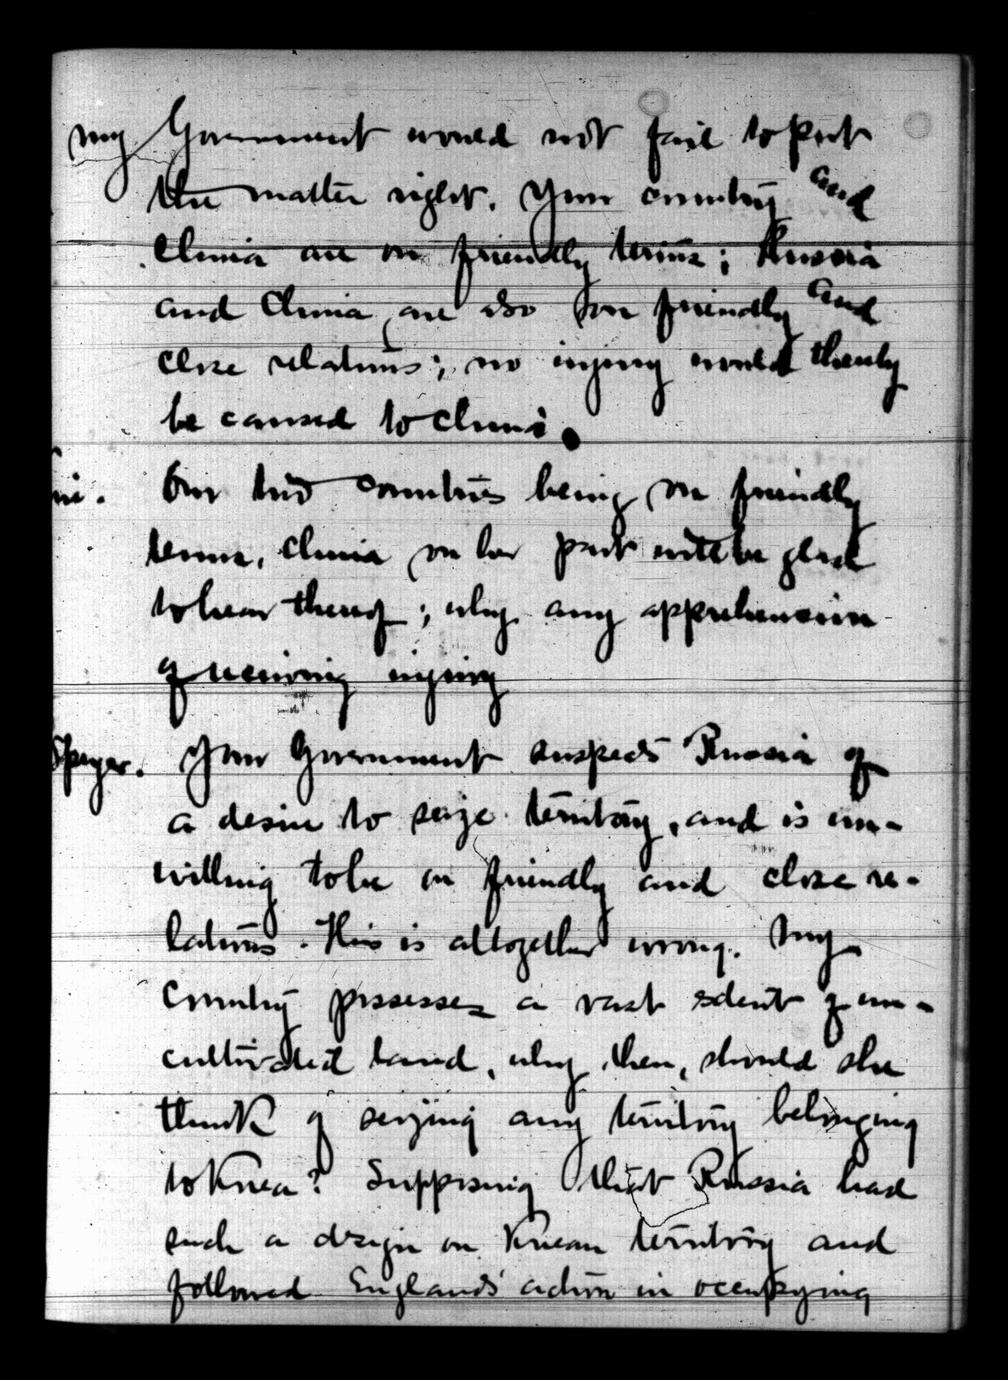 my Government would not fail to put
the matter right. Your country and
China are on friendly terms; Russia
and China are also on friendly and
close relations; no injury would thereby
be caused to China.
Our two countries being on friendly
terms, China on her part will be glad
to hear thereof; why any apprehension
of receiving injury
Speyer. Your Government suspects Russia of
a desire to seize territory, and is un-
willing to be on friendly and close re-
lations. This is altogether wrong. My
Country possesses a vast extent of un-
cultivated land, why then, should she
think of seizing any territory belonging
to Korea? Supposing that Russia had
such a design on Korean territory and
followed England's action in occupying